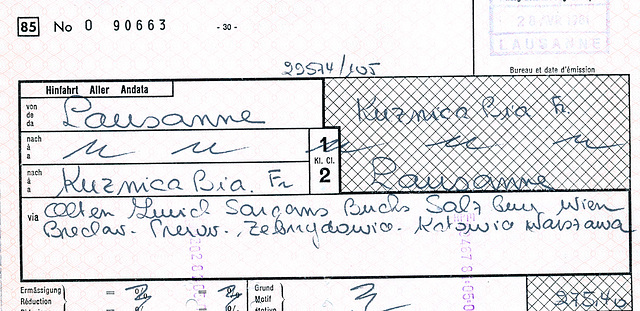 85 No 0 90663 - 30 -
LAUSANNE
29574/105
Bureau et date d'émission
Hinfahrt Aller Andata
von
de
da
Lausanne
Kuznica Bia Fr.
nach
à
a
1
Kl. Cl.
2
nach
à
a
Kuznica Bia. Fr
Lausanne
via
Olten Zurich Sargans Buchs Salzburg Wien
Breclav - Prerov - Zebrzydowice - Katowice Warszawa
Ermässigung
Réduction
Grund
Motif
275,40